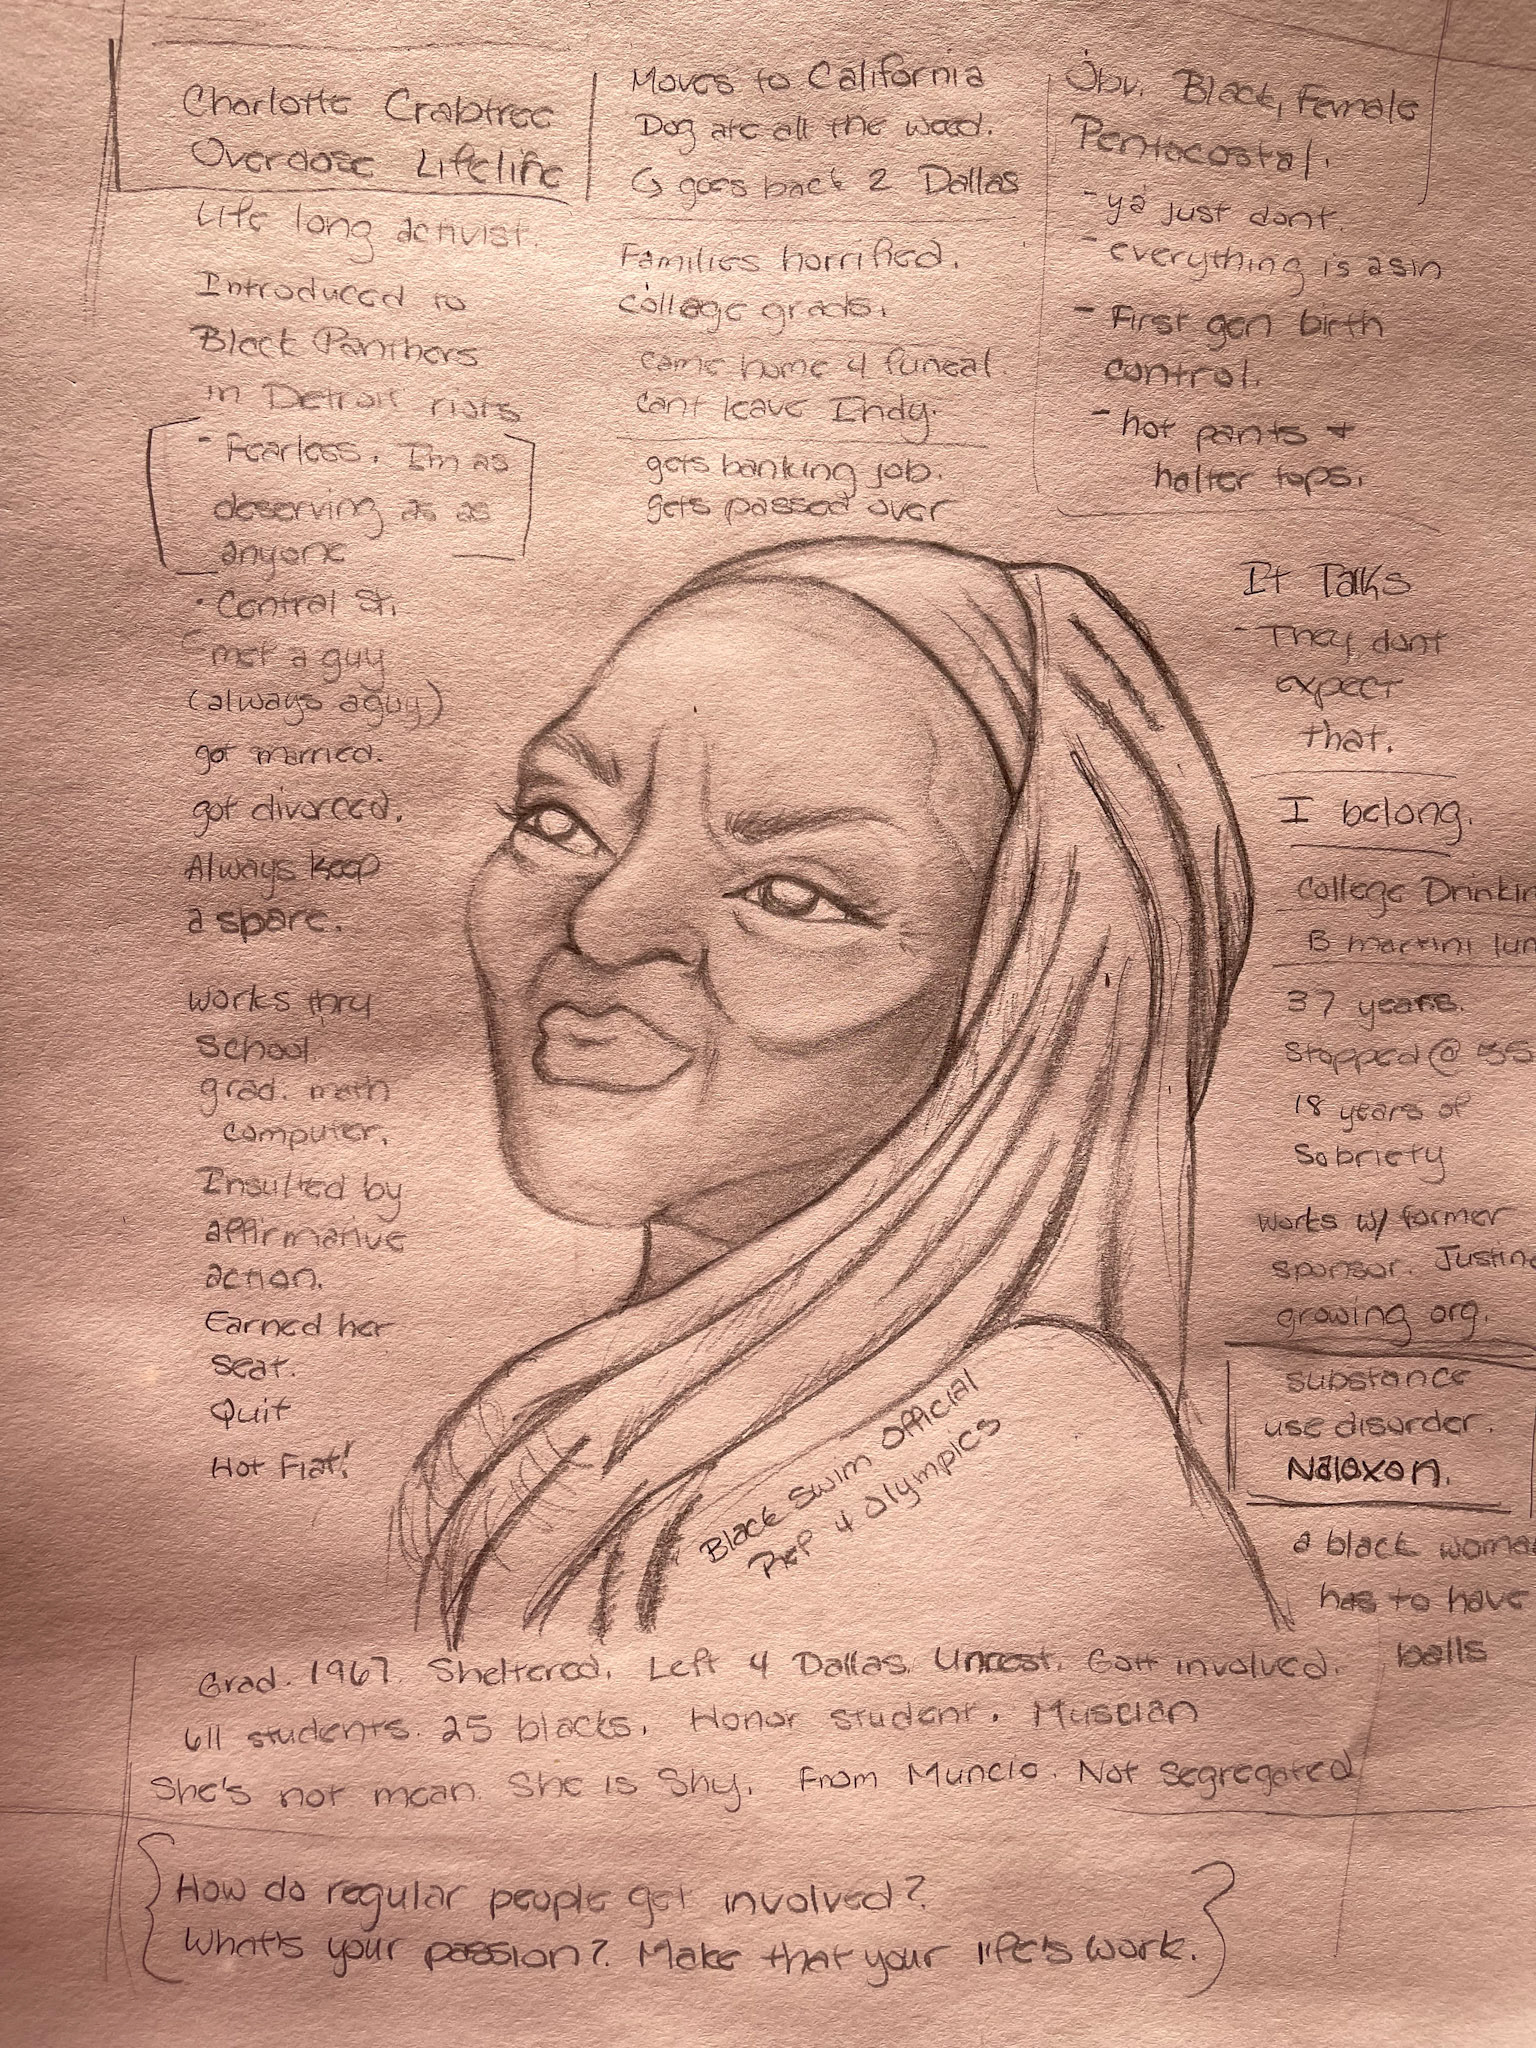 Charlotte Crabtree
Overdose Lifeline
Life long activist.
Introduced to
Black Panthers
in Detroit riots
- Fearless. I'm as
deserving as as
anyone
· Central St.
- met a guy
(always a guy)
got married.
got divorced.
Always keep
a spare.
works thru
School.
grad. math
computer.
Insulted by
affirmative
action.
Earned her
seat.
Quit
Hot Fiat!
Moves to California
Dog ate all the weed.
↳ goes back 2 Dallas
Families horrified.
college grads.
came home 4 funeal.
cant leave Indy.
gets banking job.
gets passed over
Obv. Black, Female
Pentacostal.
- ya just dont.
- everything is a sin
- First gen birth
control.
- hot pants +
halter tops.
It Talks
- They dont
expect
that.
I belong.
College Drinkin
martini lun
37 years.
Stopped @ 55
18 years of
Sobriety
works w/ former
sponsor. Justin
growing org.
substance
use disorder.
Naloxon.
a black woma
has to have
balls
Black Swim Official
Prep 4 Olympics
Grad. 1967. Sheltered. Left 4 Dallas. Unrest. Gott involved.
611 students. 25 blacks. Honor student. Muscian
She's not mean. She is Shy. From Muncie. Not segregated
{How do regular people get involved?
What's your passion? Make that your life's work.}